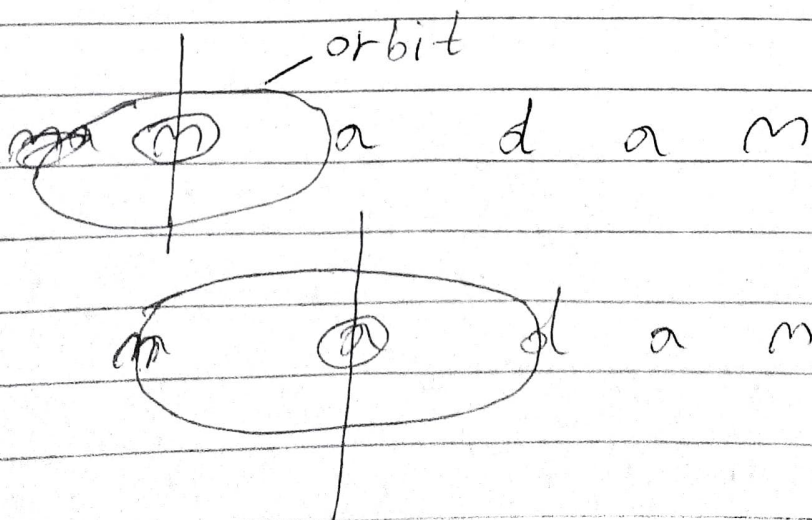 orbit
m a d a m
m a d a m